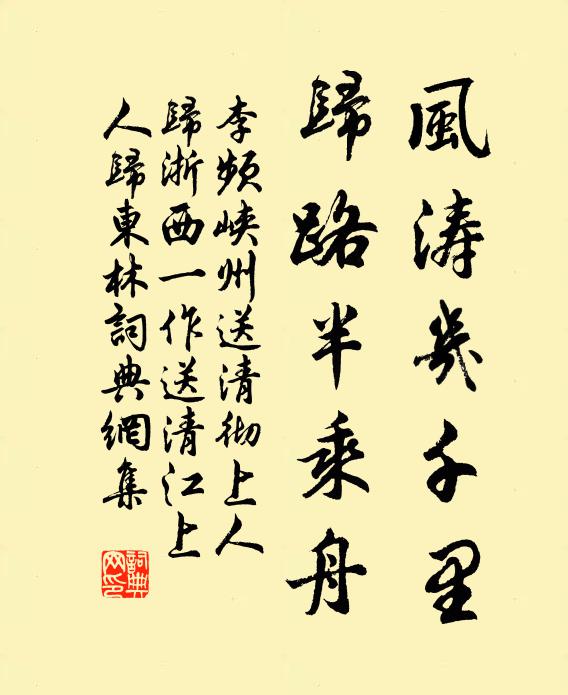 風涛幾千里
歸路半乘舟
李頻峡州送清彻上人
歸浙西一作送清江上
人歸東林詞典網集
詞典網印